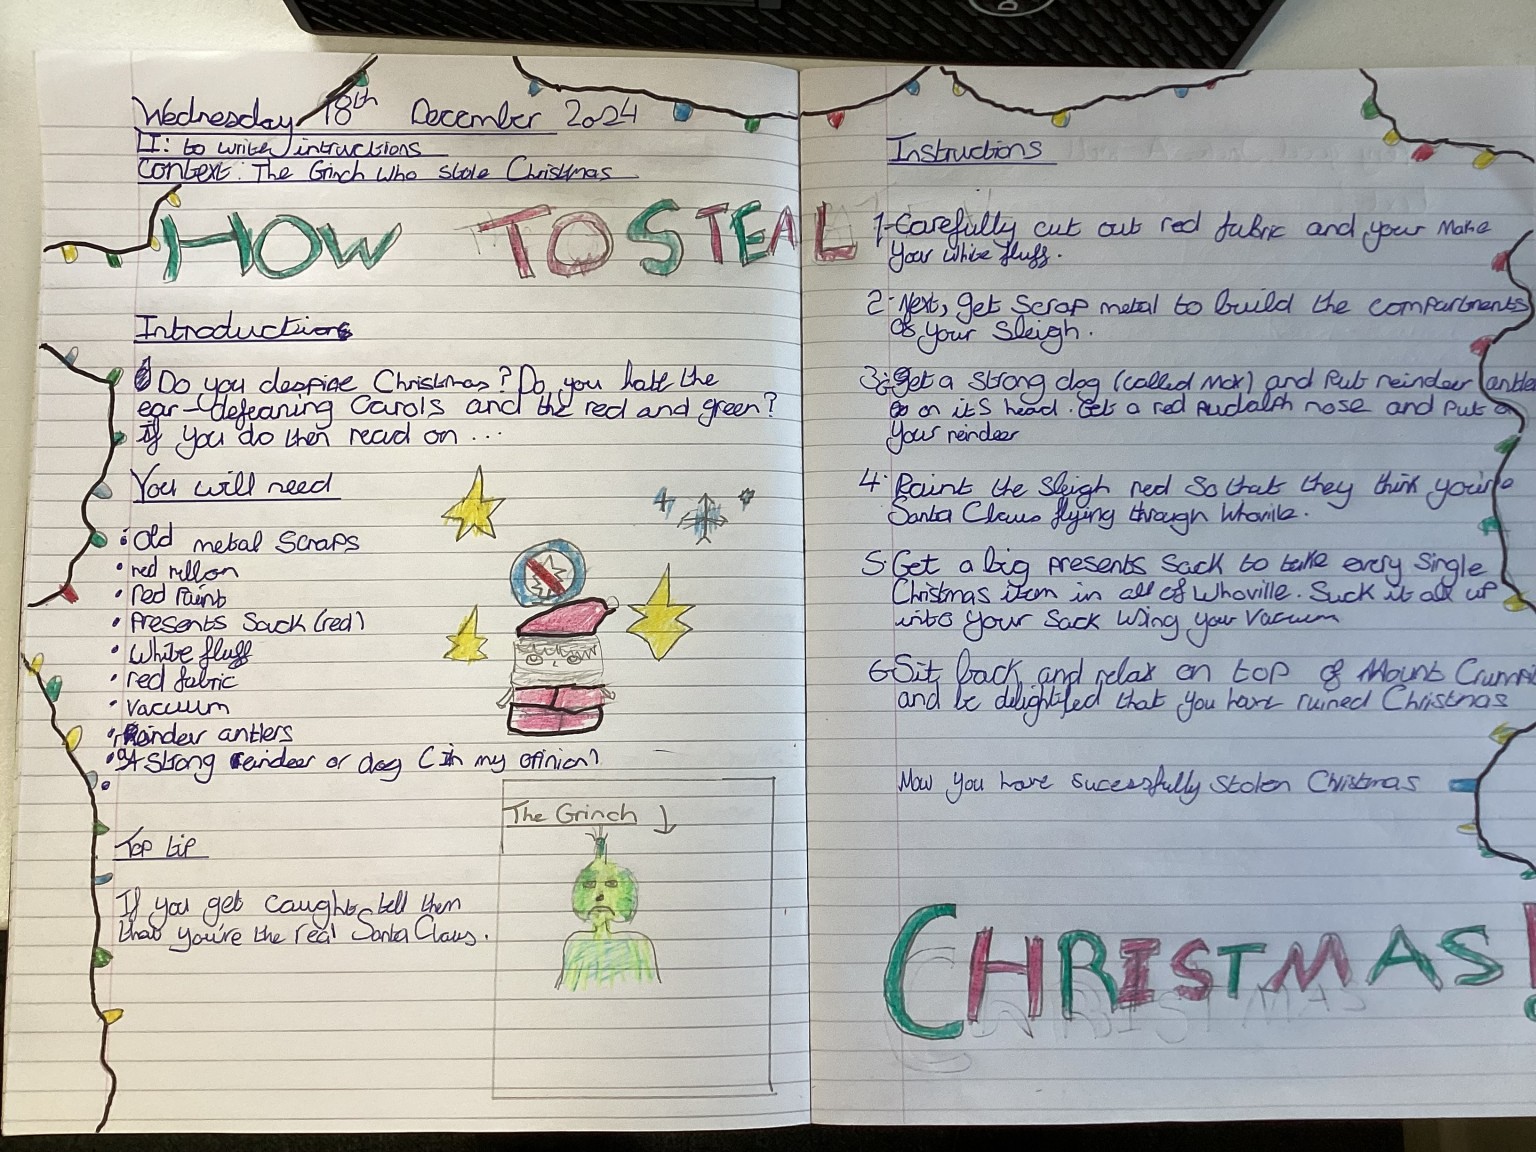 Wednesday 18th December 2024
LI: to write intructions
Context: The Grinch who stole Christmas
HOW TO STEAL
Introduction
Do you despise Christmas? Do you hate the
ear-defeaning Carols and the red and green?
if you do then read on ...
You will need
• Old metal Scraps
• red
• Red Paint
• Presents Sack (red)
• White fluff
• red fabric
• vacuum
• Reinder antlers
• A strong reindeer or dog (in my opinion)
Top tip
If you get caught, tell them
that you're the real Santa Claus.
The Grinch
Instructions
1- Carefully cut out red fabric and your make
your white fluff.
2- Next, get scrap metal to build the compartments
of your Sleigh.
3- get a strong dog (called Max) and Put reindeer antle
on its head. Get a red Rudolph nose and Put
your reindeer
4. Paint the sleigh red So that they think you're
Santa Claus flying through Whoville.
5. Get a big presents Sack to take every single
Christmas item in all of Whoville. Suck it all up
into your Sack using your Vacuum
6- Sit back and relax on top of Mount Crumpi
and be delightfed that you have ruined Christmas
Now you have sucessfully stolen Christmas
CHRISTMAS!